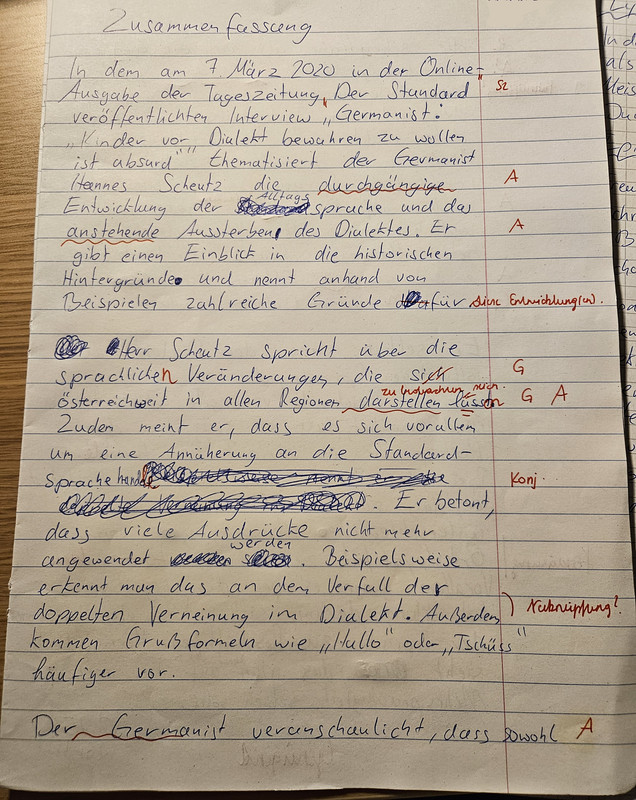 Zusammenfassung
In dem am 7. März 2020 in der Online-
Ausgabe der Tageszeitung „Der Standard Sz
veröffentlichten Interview „Germanist:
„Kinder vor Dialekt bewahren zu wollen
ist absurd" thematisiert der Germanist
Hannes Scheutz die durchgängige A
Alltags
Entwicklung der sprache und das
anstehende Aussterben des Dialektes. Er A
gibt einen Einblick in die historischen
Hintergründe und nennt anhand von
Beispielen zahlreiche Gründe dafür diese Entwicklung(en).
Herr Scheutz spricht über die
sprachlichen Veränderungen, die sich G
zu beobachten
österreichweit in allen Regionen darstellen lassen G A
Zudem meint er, dass es sich vorallem
um eine Annäherung an die Standard-
sprache handle Konj.
. Er betont,
dass viele Ausdrücke nicht mehr
werden
angewendet . Beispielsweise
erkennt man das an dem Verfall der
doppelten Verneinung im Dialekt. Außerdem ) Anknüpfung?
kommen Grußformeln wie „Hallo" oder „Tschüss"
häufiger vor.
Der Germanist veranschaulicht, dass sowohl A